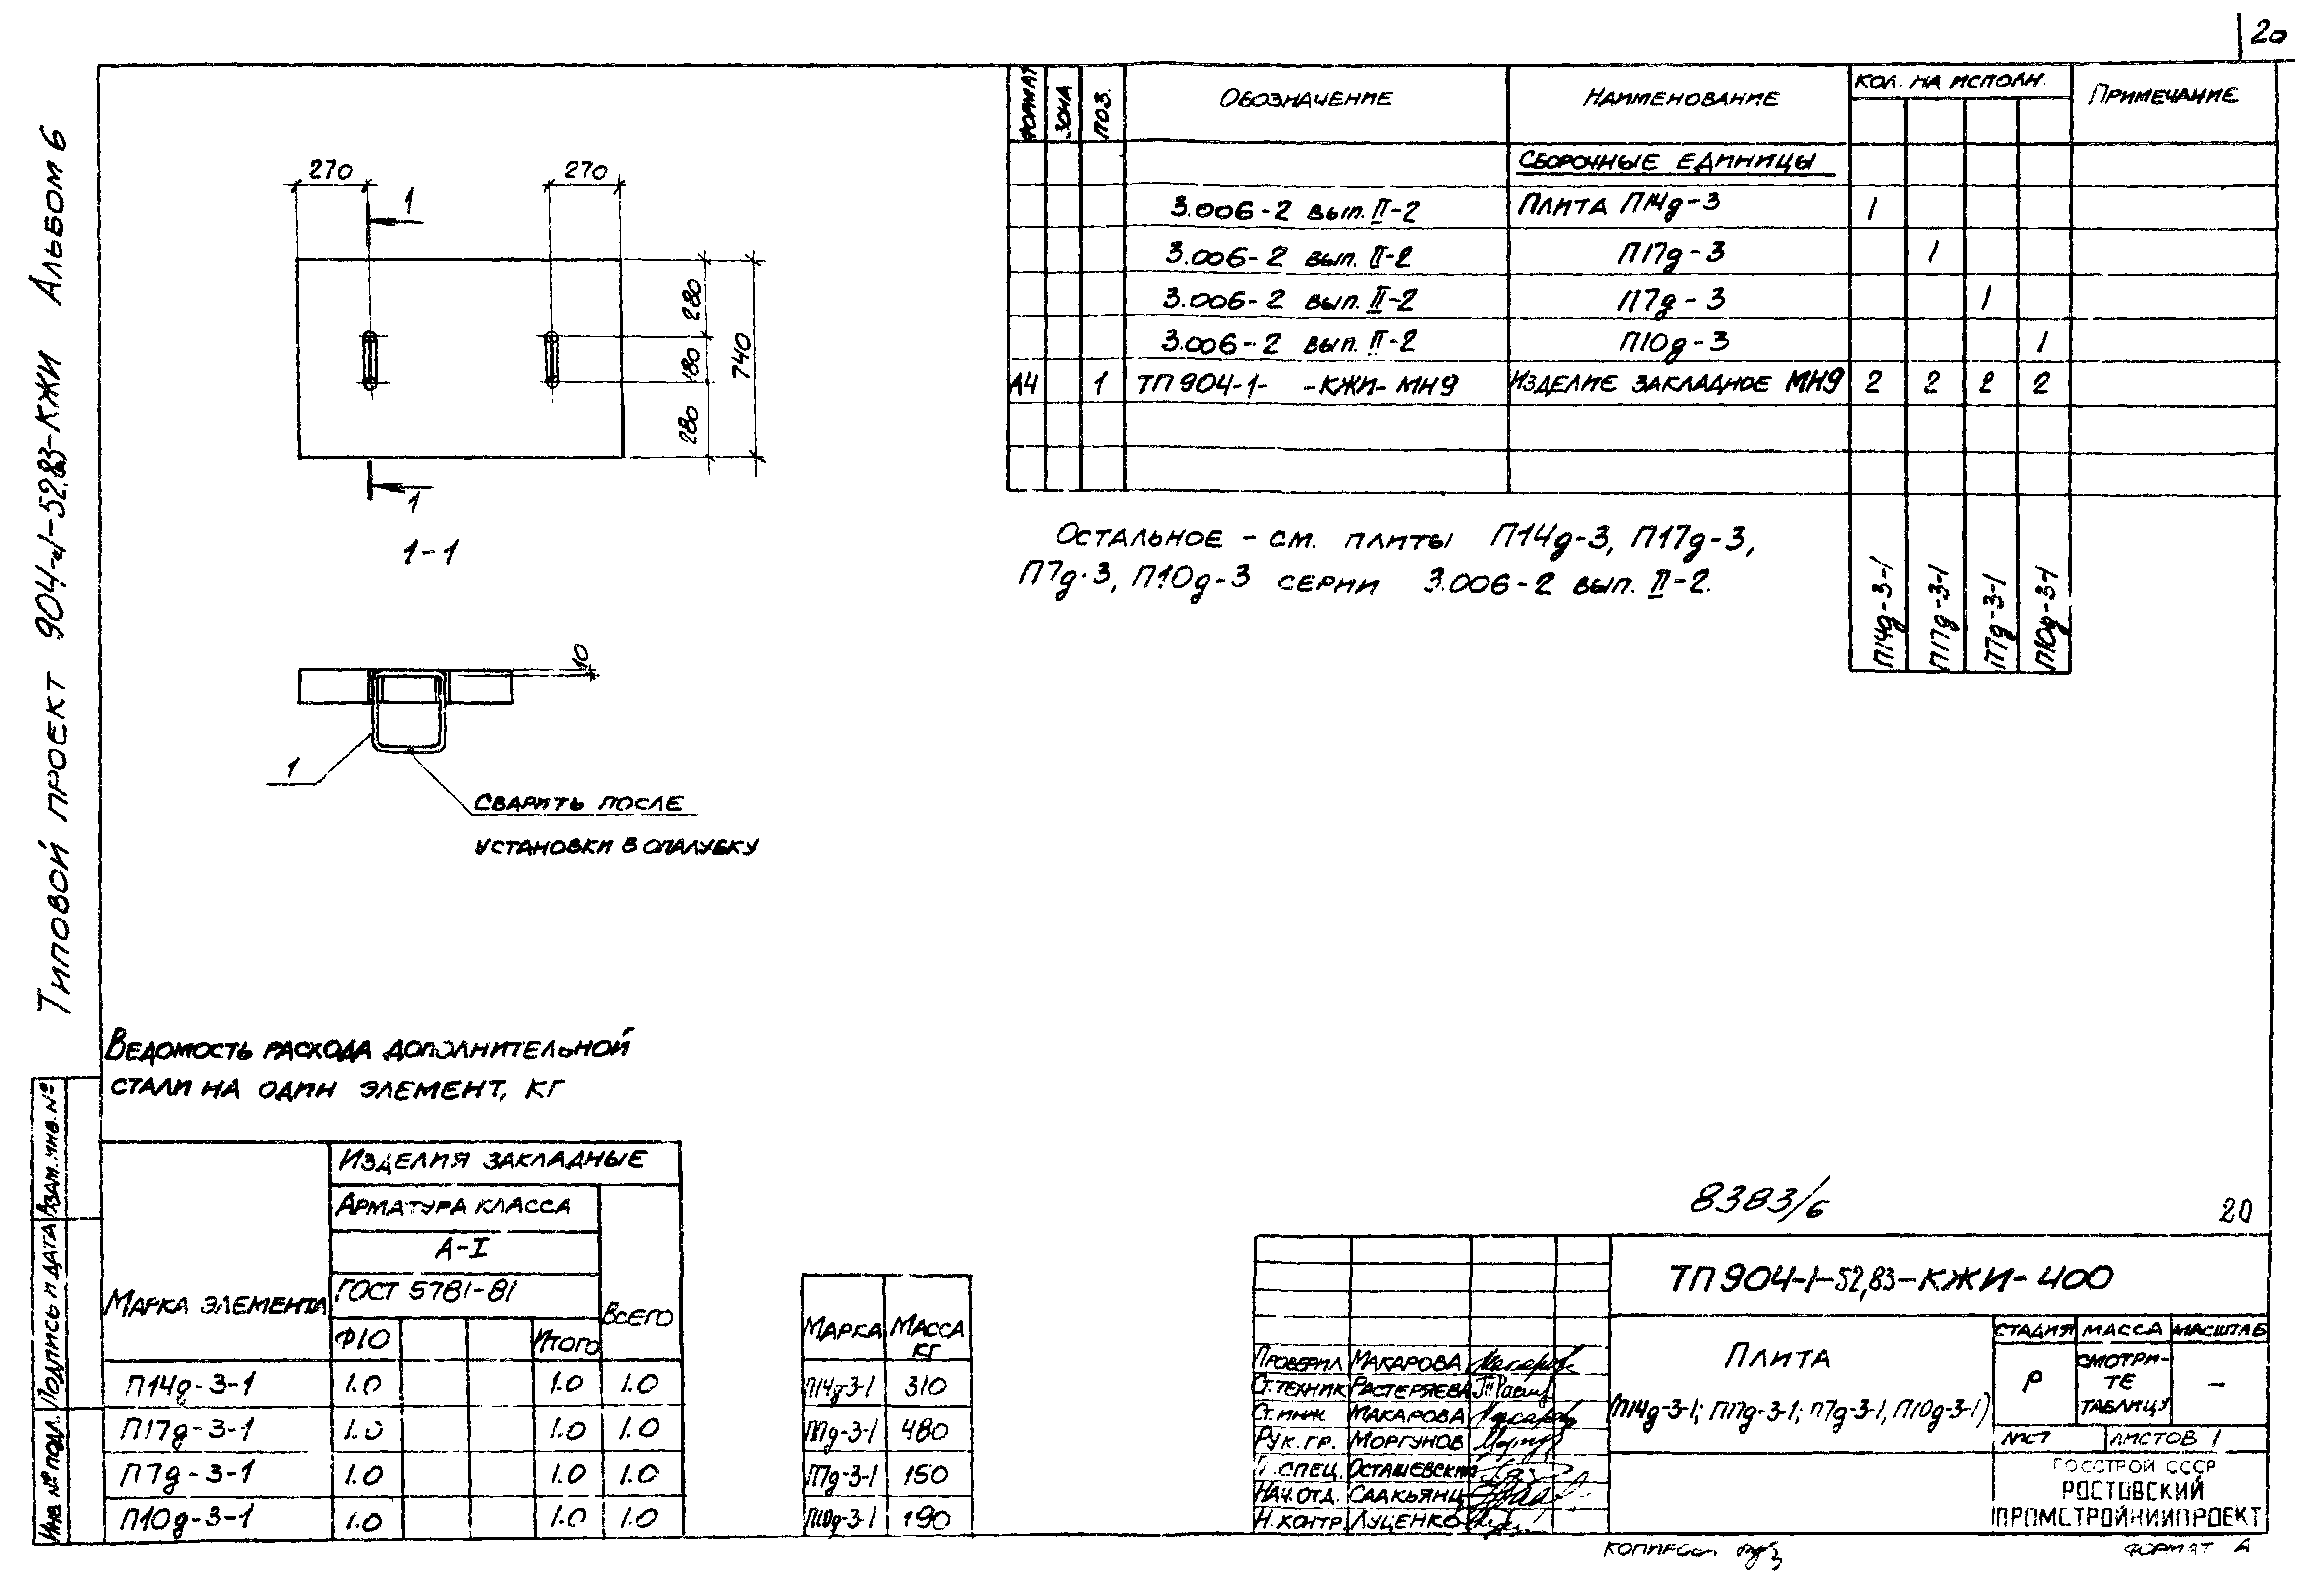 20
Типовой проект 904-1-52.83-КЖИ Альбом 6
270
270
1
280
180
280
740
1
1-1
10
1
Сварить после
установки в опалубку
Формат Зона Поз. Обозначение Наименование Кол. на исполн. Примечание
Сборочные единицы
3.006-2 вып. II-2 Плита П14д-3 1
3.006-2 вып. II-2 П17д-3 1
3.006-2 вып. II-2 П7д-3 1
3.006-2 вып. II-2 П10д-3 1
А4 1 ТП 904-1- -КЖИ-МН9 Изделие закладное МН9 2 2 2 2
П14д-3-1 П17д-3-1 П7д-3-1 П10д-3-1
Остальное - см. плиты П14д-3, П17д-3,
П7д-3, П10д-3 серии 3.006-2 вып. II-2.
Ведомость расхода дополнительной
стали на один элемент, кг
Марка элемента
Изделия закладные
Арматура класса
А-I
ГОСТ 5781-81
Всего
Ф10 Итого
П14д-3-1 1.0 1.0 1.0
П17д-3-1 1.0 1.0 1.0
П7д-3-1 1.0 1.0 1.0
П10д-3-1 1.0 1.0 1.0
Марка Масса кг
П14д-3-1 310
П17д-3-1 480
П7д-3-1 150
П10д-3-1 190
Взам. инв. №
Подпись и дата
Инв. № подл.
8383/6
20
ТП 904-1-52,83-КЖИ-400
Проверил Макарова
Ст. техник Растеряева
Ст. инж Макарова
Рук. гр. Моргунов
спец. Осташевский
Нач. отд. Саакьянц
Н. контр Луценко
Плита
(П14д-3-1; П17д-3-1; П7д-3-1, П10д-3-1)
Стадия Масса Масштаб
Р
Смотри-
те
таблицу
-
Лист Листов 1
ГОССТРОЙ СССР
РОСТОВСКИЙ
ПРОМСТРОЙНИИПРОЕКТ
Формат А